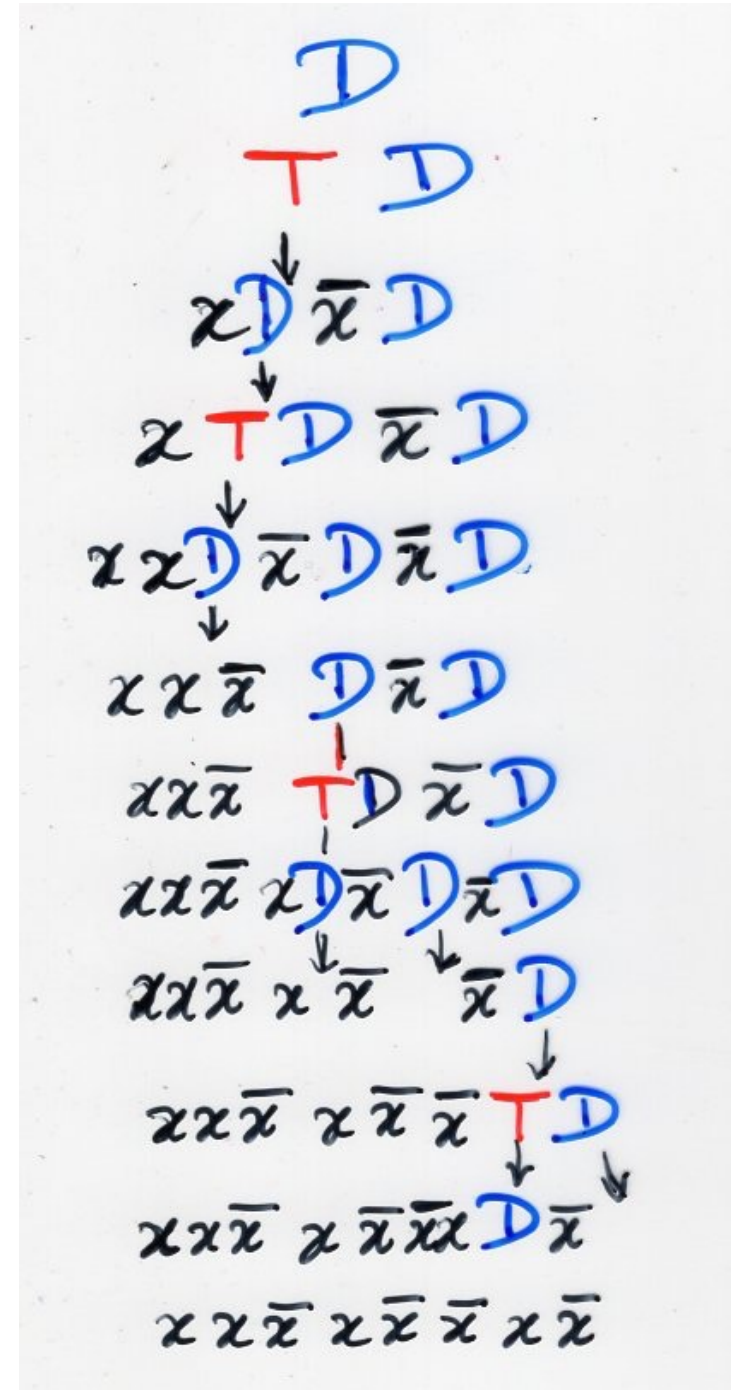 D
T D
↓
x D x̄ D
↓
x T D x̄ D
↓
x x D x̄ D x̄ D
↓
x x x̄ D x̄ D
x x x̄ T D x̄ D
x x x̄ x D x̄ D x̄ D
↓ ↓
x x x̄ x x̄ x̄ D
↓
x x x̄ x x̄ x̄ T D
↓ ↓
x x x̄ x x̄ x̄ x D x̄
x x x̄ x x̄ x̄ x x̄